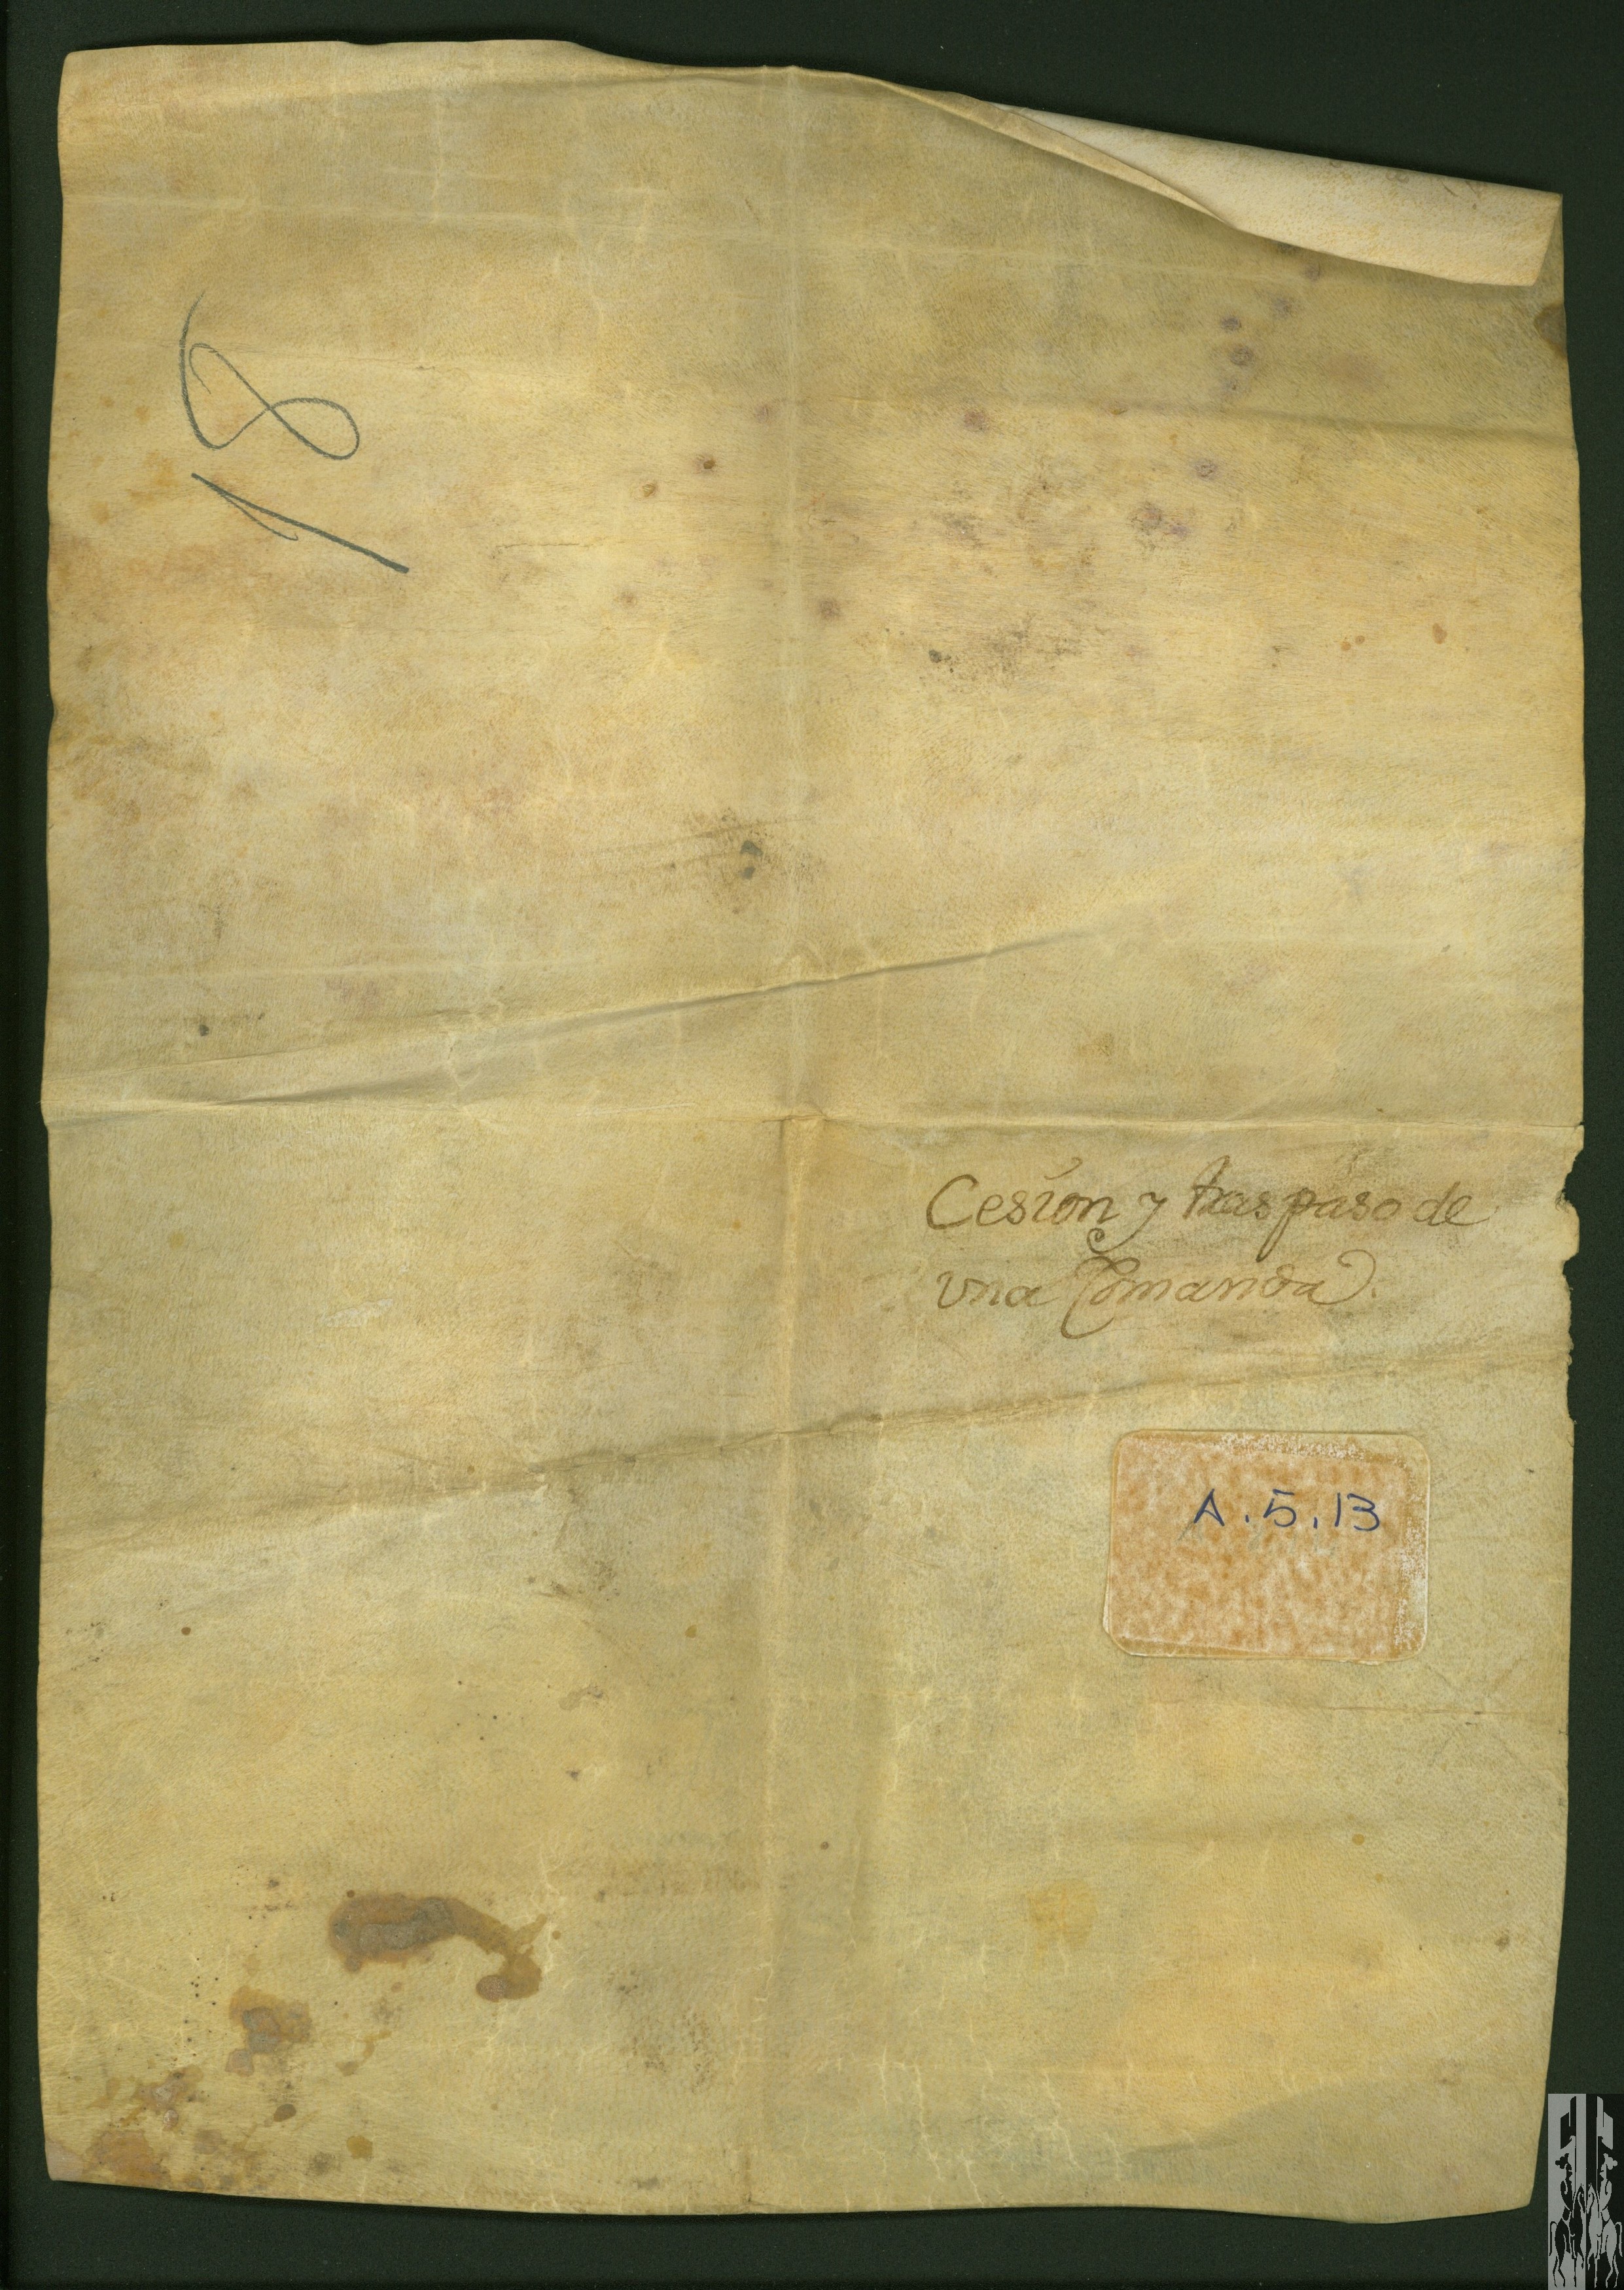 18
Cesion y traspaso de
vna Comanda.
A.5.13